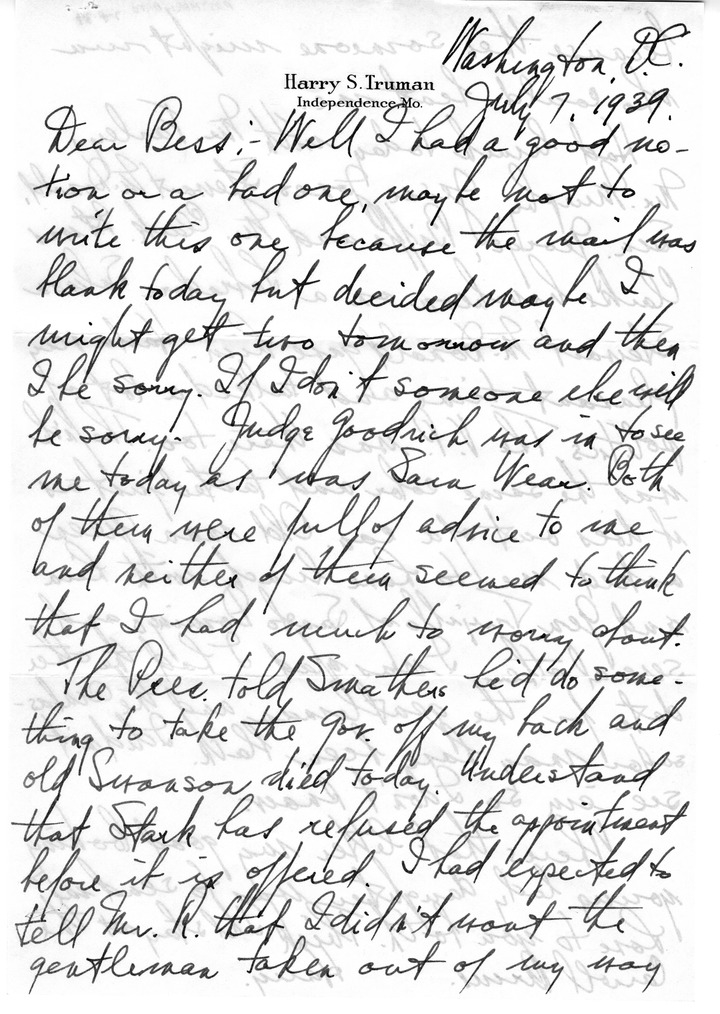 Washington, D.C.
Harry S. Truman
Independence, Mo.
July 7, 1939.
Dear Bess:- Well I had a good no-
tion or a bad one, maybe not to
write this one because the mail was
blank today but decided maybe I
might get two tomorrow and then
I be sorry. If I don't someone else will
be sorry. Judge Goodrich was in to see
me today as was Sam Wear. Both
of them were full of advice to me
and neither of them seemed to think
that I had much to worry about.
The Pres. told Smathers he'd do some-
thing to take the Gov. off my back and
old Swanson died today. Understand
that Stark has refused the appointment
before it is offered. I had expected to
tell Mr. R. that I didn't want the
gentleman taken out of my way